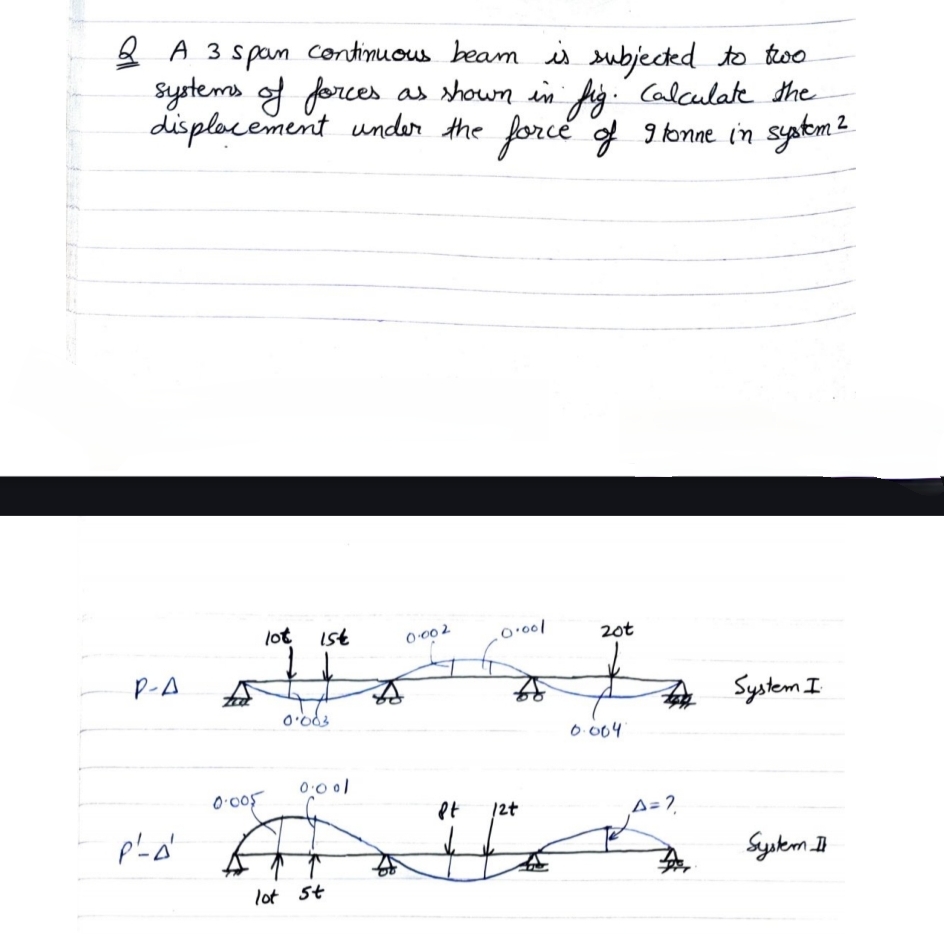 Q A 3 span continuous beam is subjected to two
systems of forces as shown in fig. Calculate the
displacement under the force of 9 tonne in system 2
10t 15t 0.002 0.001 20t
P-Δ System I
0.003 0.004
0.005 0.001 8t 12t Δ=?
P'-Δ' System II
10t 5t